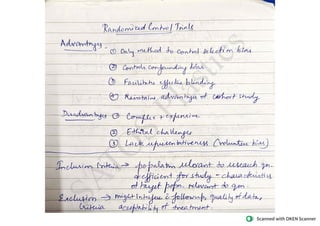 Randomised Control Trials
Advantages - ① Only method to control selection bias
② Controls confounding bias
③ Facilitate effective blinding
④ Maintains advantages of cohort study
Disadvantages ① Complex & expensive
② Ethical challenges
③ Lack representativeness (volunteer bias)
Inclusion Criteria → population relevant to research qn.
efficient for study - characteristics
of target popn. relevant to qn.
Exclusion → might interfere c follow up, quality of data,
Criteria acceptability of treatment.
Scanned with OKEN Scanner